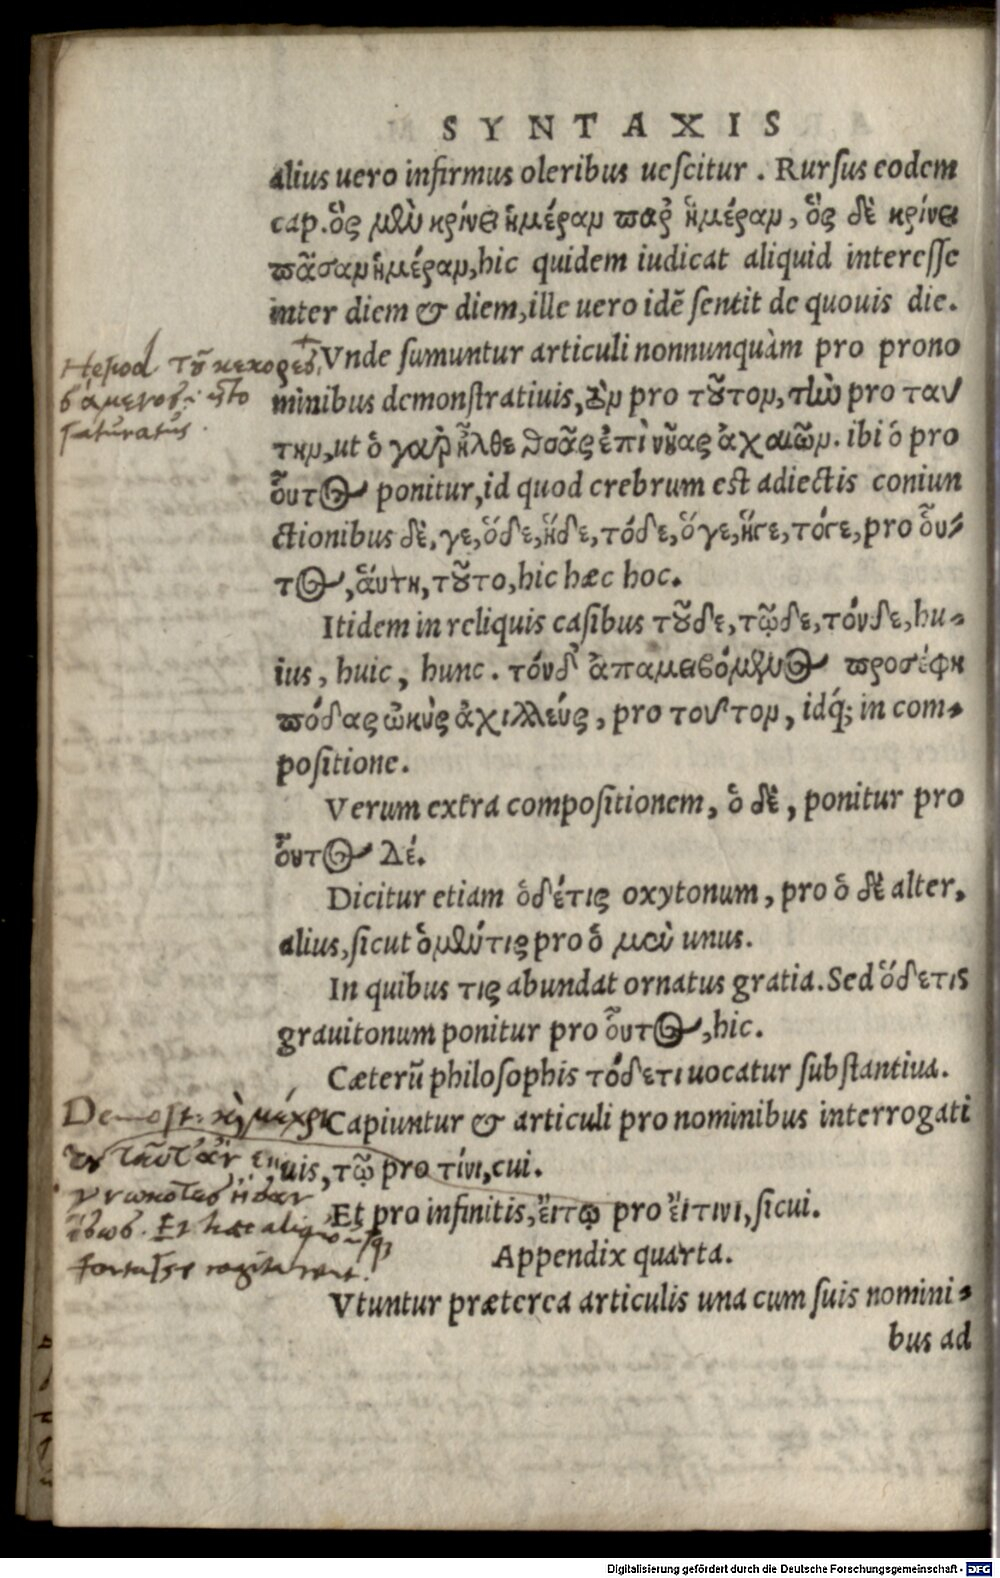 SYNTAXIS
alius uero infirmus oleribus uescitur . Rursus eodem
cap. ὃς μὲν κρίνει ἡμέραν παρ' ἡμέραν, ὃς δὲ κρίνει
πᾶσαν ἡμέραν, hic quidem iudicat aliquid interesse
inter diem & diem, ille uero idē sentit de quouis die.
Vnde sumuntur articuli nonnunquàm pro prono
minibus demonstratiuis, ὃν pro τοῦτον, τὼ pro ταύ
την, ut ὁ γὰρ ἦλθε θοὰς ἐπὶ νῆας ἀχαιῶν. ibi ὁ pro
οὗτος ponitur, id quod crebrum est adiectis coniun
ctionibus δὲ, γε, ὅδε, ἥδε, τόδε, ὅγε, ἥγε, τόγε, pro οὗ-
τος, ἅυτη, τοῦτο, hic hæc hoc.
Itidem in reliquis casibus τοῦδε, τῷδε, τόνδε, hu-
ius, huic, hunc. τόνδ' ἀπαμειβόμενος προσέφη
πόδας ὠκὺς ἀχιλλεύς, pro τοῦτον, idq́; in com-
positione.
Verum extra compositionem, ὁ δὲ, ponitur pro
οὗτος Δέ.
Dicitur etiam ὁδέτις oxytonum, pro ὁ δὲ alter,
alius, sicut ὁμέντις pro ὁ μὲν unus.
In quibus τις abundat ornatus gratia. Sed ὅδετις
grauitonum ponitur pro οὗτος, hic.
Cæterū philosophis τόδετι uocatur substantiua.
Capiuntur & articuli pro nominibus interrogati
uis, τῷ pro τίνι, cui.
Et pro infinitis, ἔιτῳ pro ἔιτινι, sicui.
Appendix quarta.
Vtuntur præterea articulis una cum suis nomini-
bus ad
saturatus.
Demost:
Et hæc
Digitalisierung gefördert durch die Deutsche Forschungsgemeinschaft - DFG